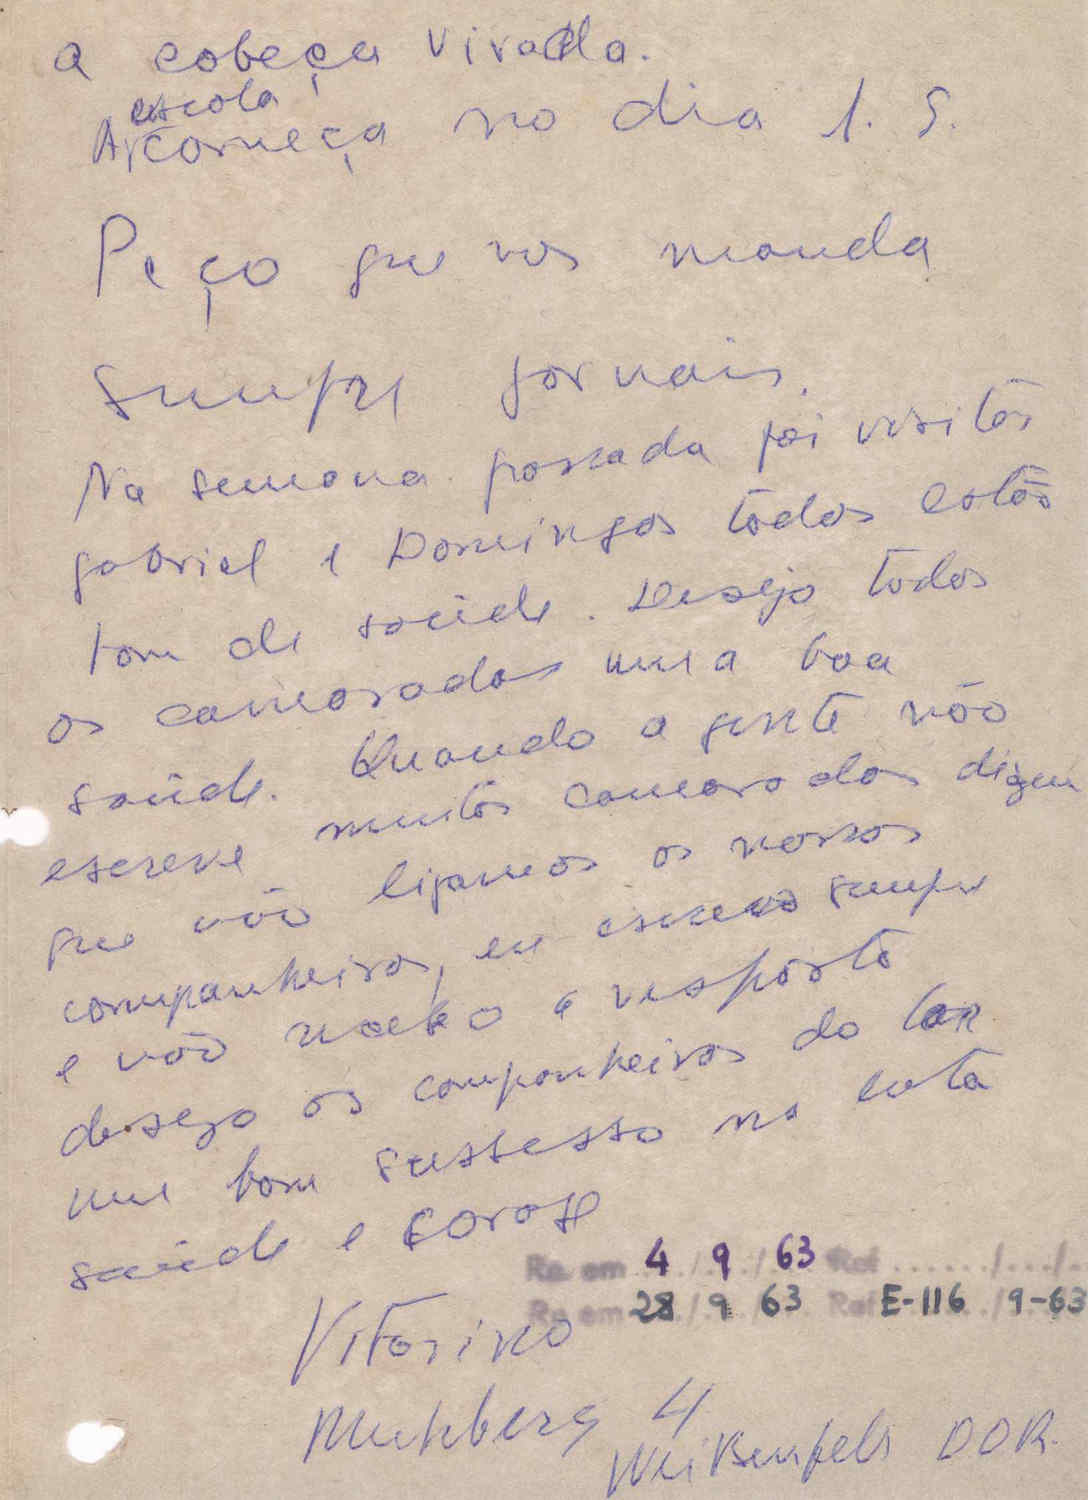 a cabeça virada.
escola
A começa no dia 1. 9.
Peço que nos manda
sempre jornais.
Na semana passada foi visitar
gabriel e Domingos todos estão
bom de saúde. Desejo todos
os camaradas uma boa
saúde. Quando a gente não
escreve muitos camaradas digem
que não ligamos os nossos
companheiros, eu escrevo sempre
e não recebo a resposta
desejo os companheiros do lar
um bom sussesso na luta
saúde e corage
Re em 4 / 9 / 63 Ref ....../.../..
Re em 28 / 9 / 63 Ref E-116 / 9-63
Vitorino
4
Weißenfels DDR.